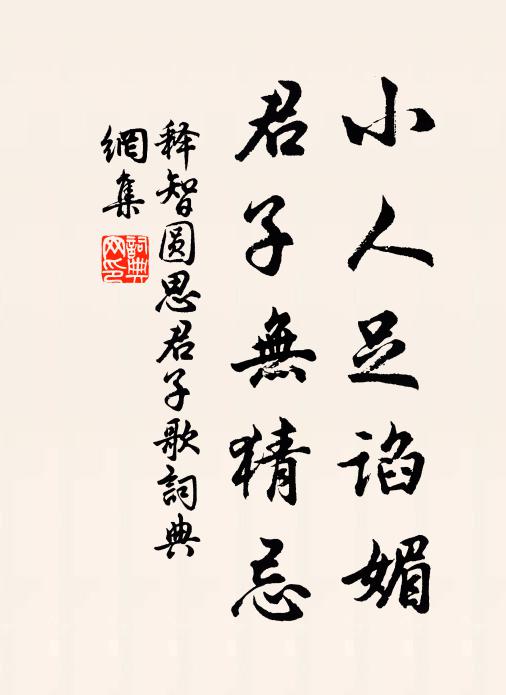 小人足谄媚
君子無猜忌
释智圆思君子歌詞典
網集
詞典網印